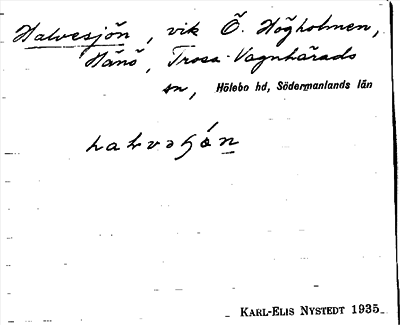 Halvesjön, vik Ö. Högholmen,
Hånö, Trosa-Vagnhärads
sn, Hölebo hd, Södermanlands län
KARL-ELIS NYSTEDT 1935